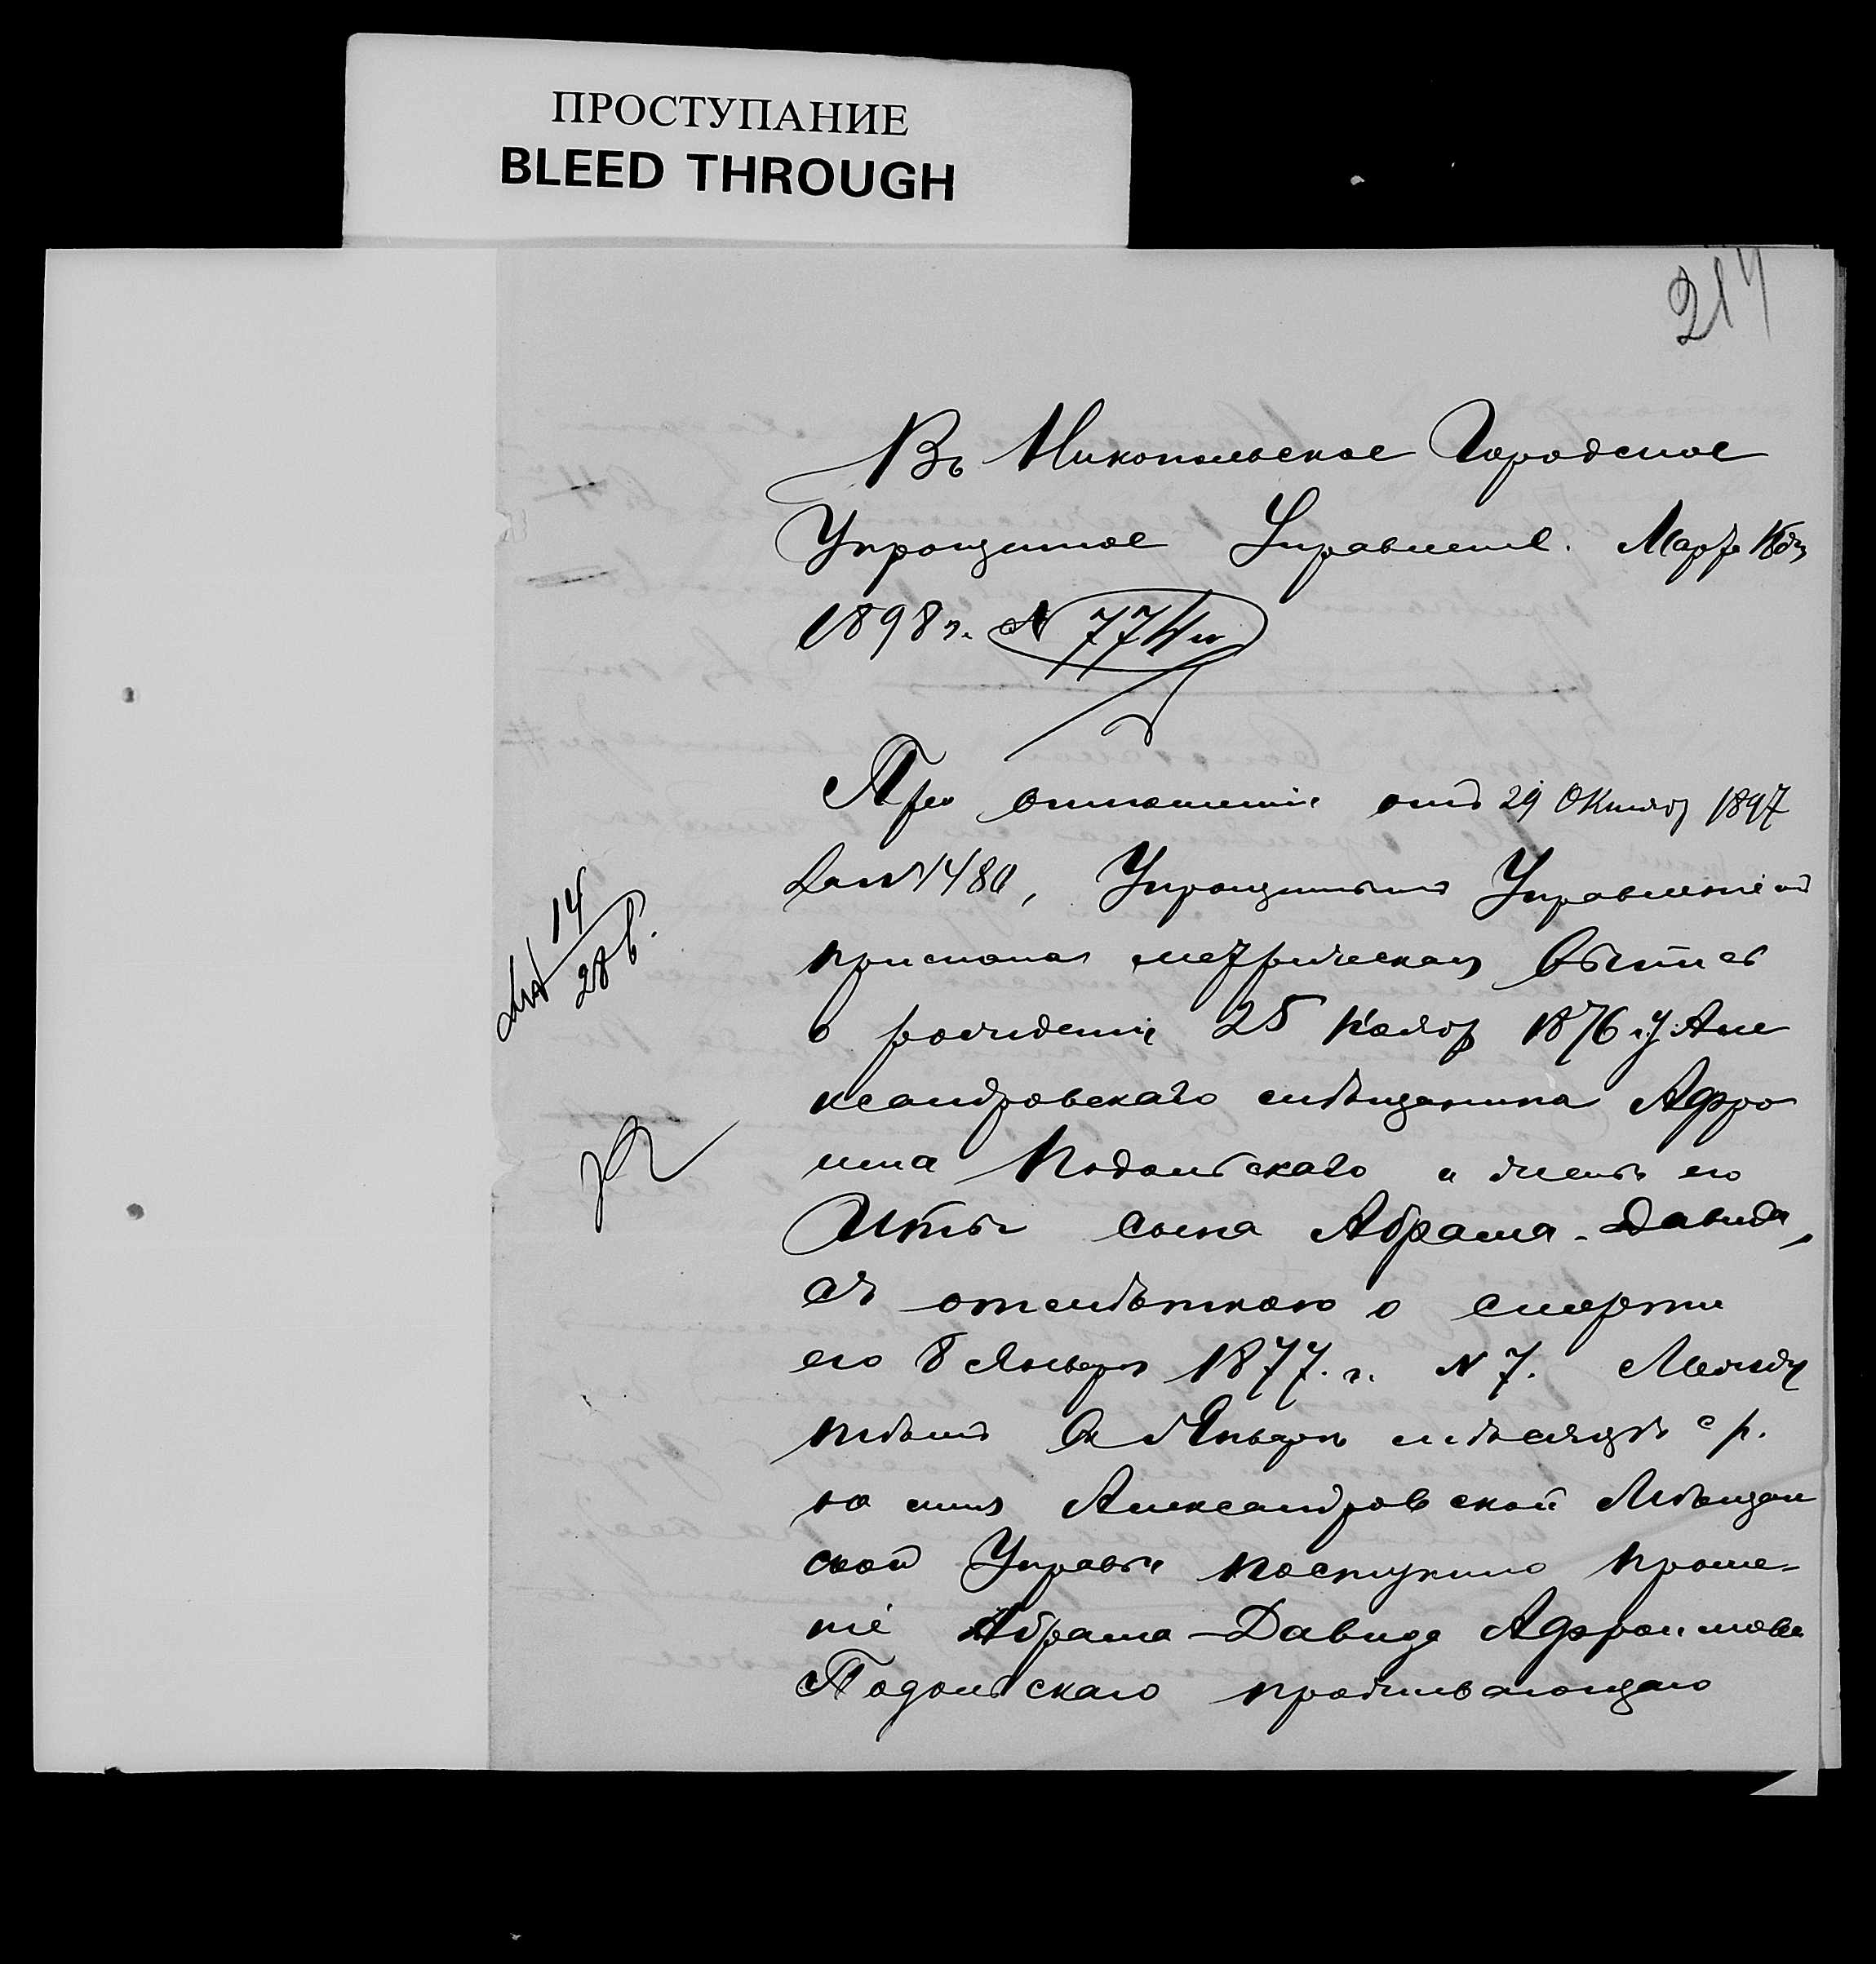 ПРОСТУПАНИЕ
BLEED THROUGH
214
Въ Никопольское Городское
Упрощенное Управленіе. Марта
1898 г. №
При отношеніи отъ 29 Октяб 1897
за № 1480, Упрощеннымъ Управленіемъ
прислана метрическая выпись
о рожденіи 25 Нояб 1876 г. у Але
ксандровскаго мѣщанина Афро
има Подольскаго и жены его
Иты сына Абрама-Давида,
съ отмѣткою о смерти
его 8 Января 1877. г. № 7. Между
тѣмъ въ Январѣ мѣсяцѣ с/г.
на имя Александровской Мѣщан
ской Управы поступило проше-
ніе Абрама-Давида Афроимова
Подольскаго проживающаго
14